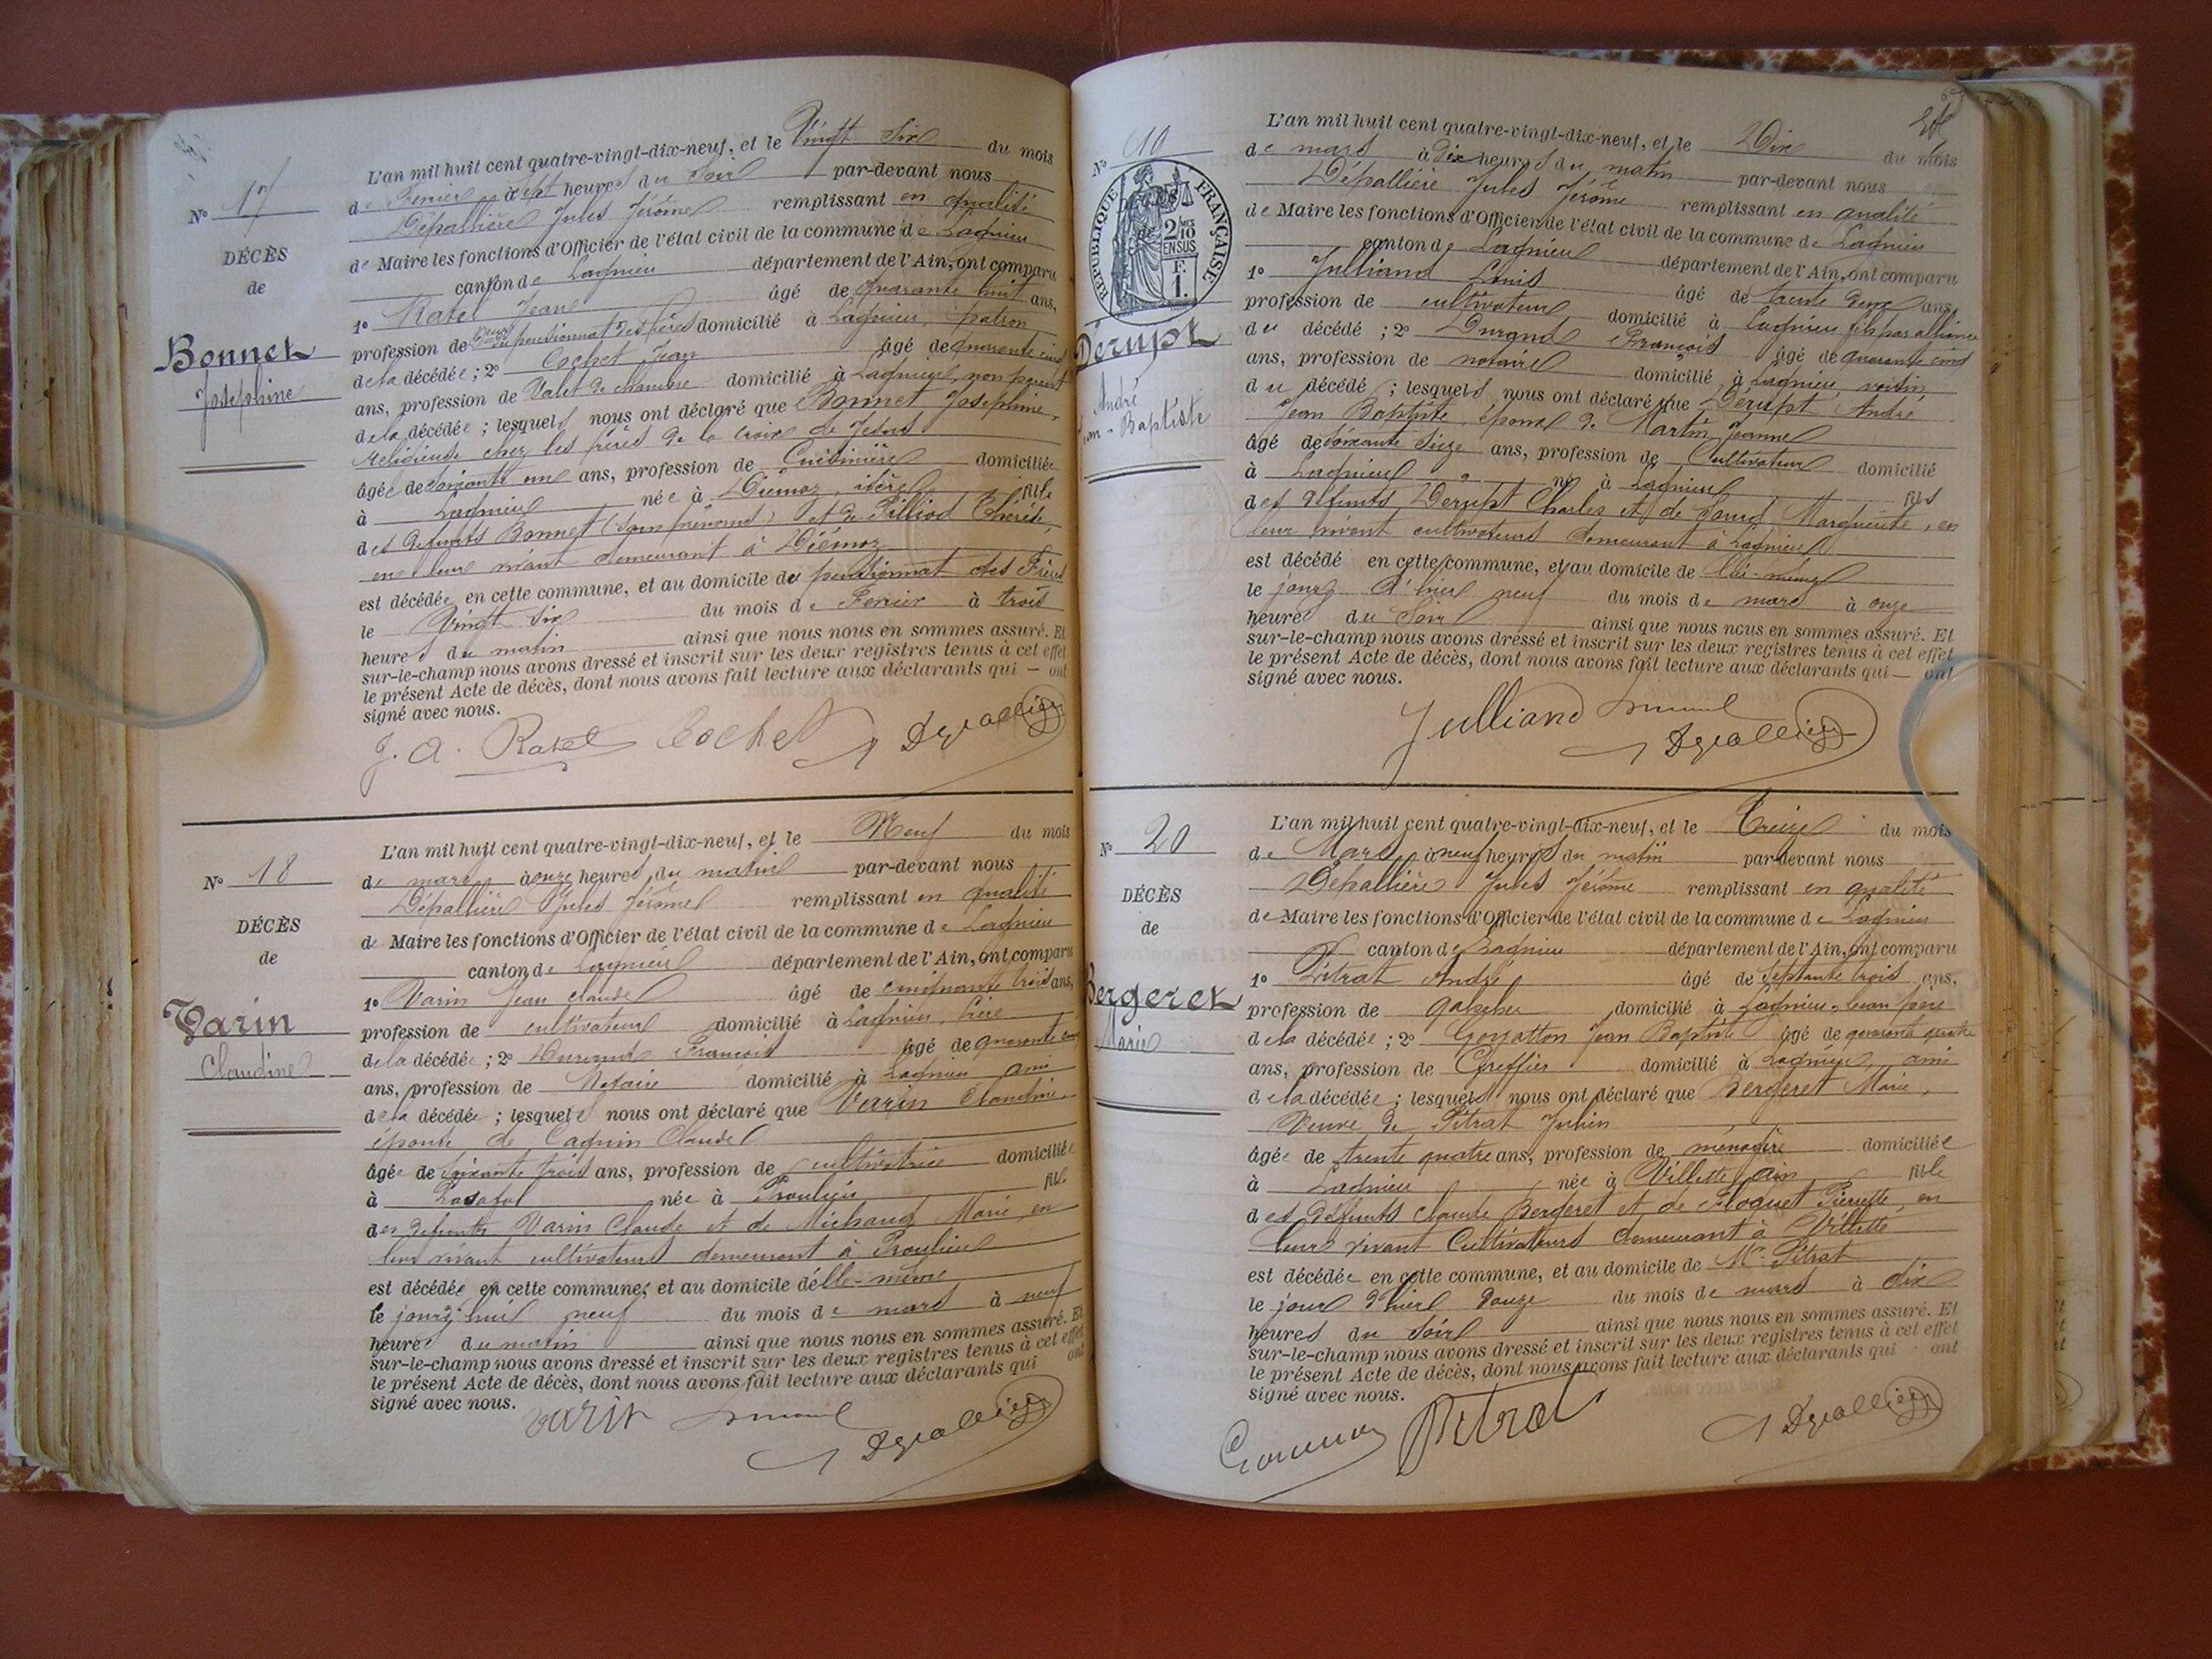 N° 17
DÉCÈS
de
Bonnet
Joséphine
L'an mil huit cent quatre-vingt-dix-neuf, et le Vingt Six du mois
de Fevrier à sept heures du Soir par-devant nous
Dépallière Jules Jérôme remplissant en qualité
de Maire les fonctions d'Officier de l'état civil de la commune de Lagnieu
canton de Lagnieu département de l'Ain, ont comparu
1° Ratel Jean âgé de quarante huit ans,
profession de pensionnat des frères domicilié à Lagnieu, patron
de la décédée ; 2° Cochet Jean âgé de quarante cinq
ans, profession de Valet de chambre domicilié à Lagnieu, non parent
de la décédée ; lesquels nous ont déclaré que Bonnet Joséphine,
religieuse chez les frères de la croix de Jésus
âgée de soixante une ans, profession de Cuisinière domiciliée
à Lagnieu née à Diémoz, isère fille
des defunts Bonnet (sans prénoms) et de Pilliod Thérèse,
en leur vivant demeurant à Diémoz
est décédée en cette commune, et au domicile du pensionnat des Frères
le Vingt Six du mois de Fevrier à trois
heures du matin ainsi que nous nous en sommes assuré. Et
sur-le-champ nous avons dressé et inscrit sur les deux registres tenus à cet effet
le présent Acte de décès, dont nous avons fait lecture aux déclarants qui — ont
signé avec nous.
J. A. Ratel Cochet Dépallière
N° 18
DÉCÈS
de
Varin
Claudine
L'an mil huit cent quatre-vingt-dix-neuf, et le Neuf du mois
de mars à onze heures du matin par-devant nous
Dépallière Jules Jérôme remplissant en qualité
de Maire les fonctions d'Officier de l'état civil de la commune de Lagnieu
canton de Lagnieu département de l'Ain, ont comparu
1° Varin Jean Claude âgé de cinquante trois ans,
profession de cultivateur domicilié à Lagnieu, frère
de la décédée ; 2° Durand François âgé de quarante cinq
ans, profession de Notaire domicilié à Lagnieu ami
de la décédée ; lesquels nous ont déclaré que Varin Claudine,
épouse de Cagnin Claude
âgée de soixante trois ans, profession de cultivatrice domiciliée
à Posafol née à Proulieu fille
des defunts Varin Claude et de Michaud Marie, en
leur vivant cultivateurs demeurant à Proulieu
est décédée en cette commune, et au domicile d'elle-même
le jourd'hui neuf du mois de mars à neuf
heures du matin ainsi que nous nous en sommes assuré. Et
sur-le-champ nous avons dressé et inscrit sur les deux registres tenus à cet effet
le présent Acte de décès, dont nous avons fait lecture aux déclarants qui ont
signé avec nous.
Varin Durand Dépallière
N° 19
RÉPUBLIQUE FRANÇAISE
2/10
EN SUS
F.
1.
Dérupt
André
Jean-Baptiste
L'an mil huit cent quatre-vingt-dix-neuf, et le Dix du mois
de mars à Dix heures du matin par-devant nous
Dépallière Jules Jérôme remplissant en qualité
de Maire les fonctions d'Officier de l'état civil de la commune de Lagnieu
canton de Lagnieu département de l'Ain, ont comparu
1° Julliand Louis âgé de trente deux ans,
profession de cultivateur domicilié à Lagnieu fils par alliance
du décédé ; 2° Durand François âgé de quarante cinq
ans, profession de notaire domicilié à Lagnieu, voisin
du décédé ; lesquels nous ont déclaré que Dérupt André
Jean Baptiste, époux de Martin Jeanne
âgé de soixante seize ans, profession de Cultivateur domicilié
à Lagnieu né à Lagnieu fils
des defunts Derupt Charles et de Marguerite, en
leur vivant cultivateurs demeurant à Lagnieu
est décédé en cette commune, et au domicile de lui-même
le jour d'hier neuf du mois de mars à onze
heures du Soir ainsi que nous nous en sommes assuré. Et
sur-le-champ nous avons dressé et inscrit sur les deux registres tenus à cet effet
le présent Acte de décès, dont nous avons fait lecture aux déclarants qui — ont
signé avec nous.
Julliand Durand Dépallière
N° 20
DÉCÈS
de
Bergeret
Marie
L'an mil huit cent quatre-vingt-dix-neuf, et le Treize du mois
de Mars à neuf heures du matin par-devant nous
Dépallière Jules Jérôme remplissant en qualité
de Maire les fonctions d'Officier de l'état civil de la commune de Lagnieu
canton de Lagnieu département de l'Ain, ont comparu
1° Pitrat André âgé de septante trois ans,
profession de domicilié à Lagnieu, beau père
de la décédée ; 2° Goyatton Jean Baptiste âgé de quarante quatre
ans, profession de Greffier domicilié à Lagnieu, ami
de la décédée ; lesquels nous ont déclaré que Bergeret Marie,
Veuve de Pitrat Julien
âgée de trente quatre ans, profession de ménagère domiciliée
à Lagnieu née à Villette Ain fille
des défunts Claude Bergeret et de Floquet Pierrette, en
leur vivant Cultivateurs demeurant à Villette
est décédée en cette commune, et au domicile de Mr Pitrat
le jour d'hier douze du mois de mars à dix
heures du Soir ainsi que nous nous en sommes assuré. Et
sur-le-champ nous avons dressé et inscrit sur les deux registres tenus à cet effet
le présent Acte de décès, dont nous avons fait lecture aux déclarants qui ont
signé avec nous.
Pitrat Dépallière